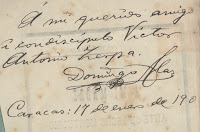 A mi querido amigo
i condiscípulo Victor
Antonio Zerpa.
Domingo
Caracas: 17 de enero de 190